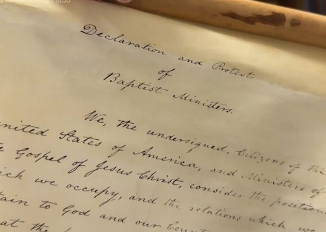 Declaration and Protest
of
Baptist Ministers.
We, the undersigned, Citizens of the
United States of America, and Ministers of
Gospel of Jesus Christ, consider the position
which we occupy, and the relations which we
to God and our
at the